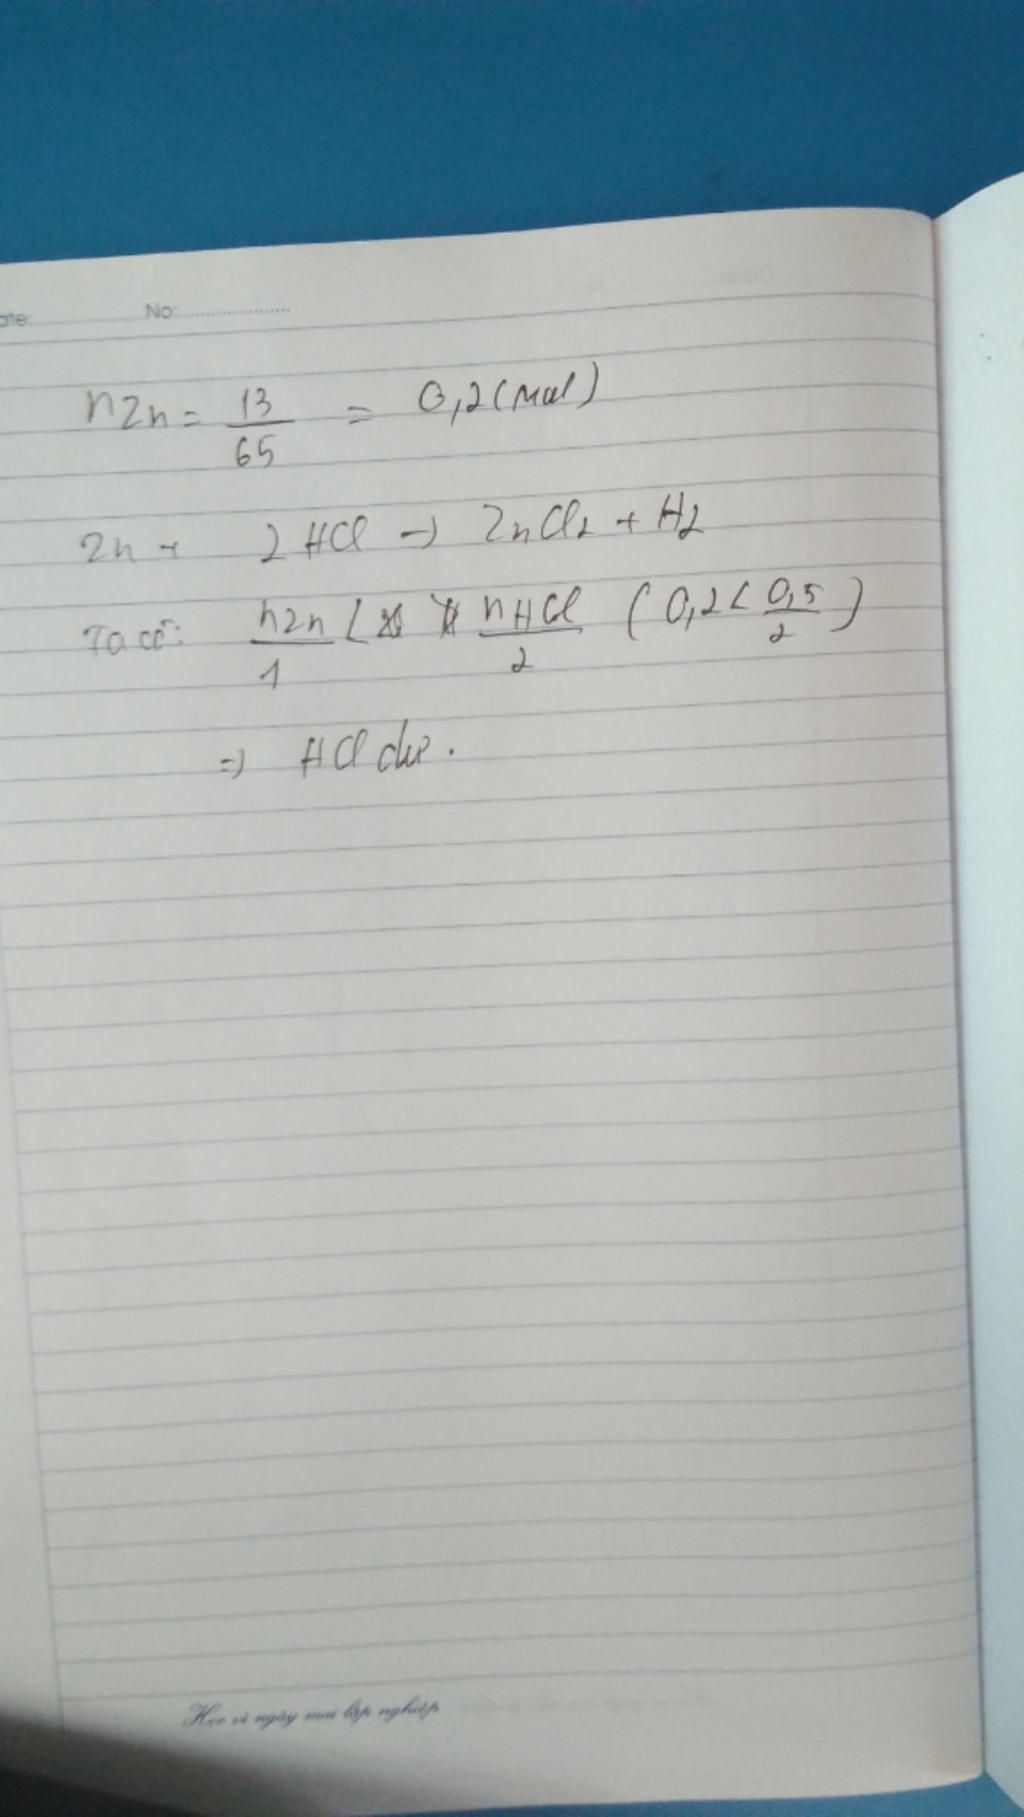 ate: No:
nZn = 13/65 = 0,2 (mol)
Zn + 2HCl → ZnCl2 + H2
Ta có: nZn/1 < nHCl/2 (0,2 < 0,5/2)
=> HCl dư.
Học vì ngày mai lập nghiệp